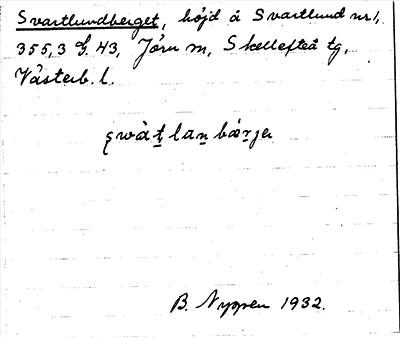 Svartlundberget, höjd å Svartlund nr 1,
355,3 G. 43, Jörn sn, Skellefteå tg,
Västerb. l.
B. Nygren 1932.